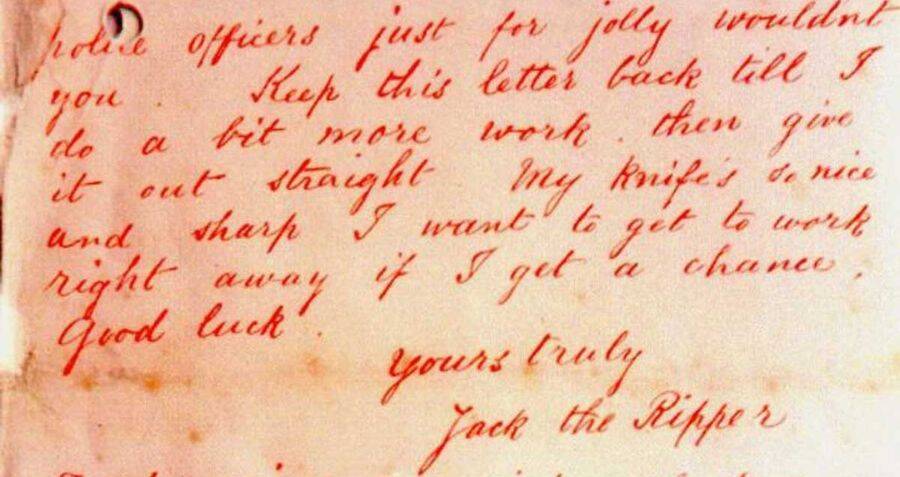 police officers just for jolly wouldnt
you. Keep this letter back till I
do a bit more work. then give
it out straight My knife's so nice
and sharp I want to get to work
right away if I get a chance.
Good luck.
Yours truly
Jack the Ripper